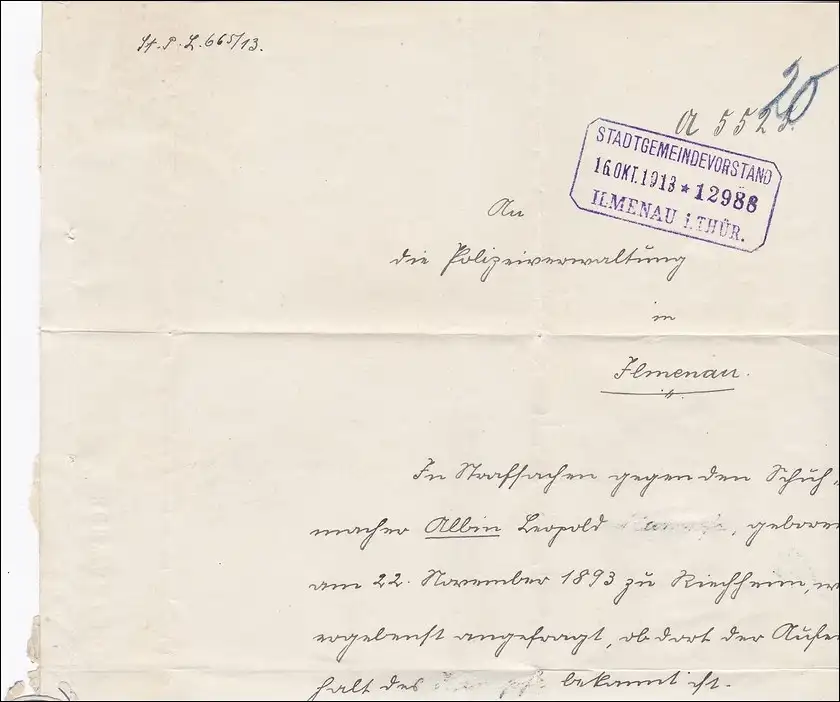 St. P. L. 665/13.
20
A 552
STADTGEMEINDEVORSTAND
16.OKT.1913 * 12988
ILMENAU i.THÜR.
An
die Polizeiverwaltung
in
Ilmenau.
In Strafsachen gegen den Schuh-
macher Albin Leopold , geboren
am 22. November 1893 zu Riechheim, w
ergebenst angefragt, ob dort der Aufen
halt des bekannt ist.